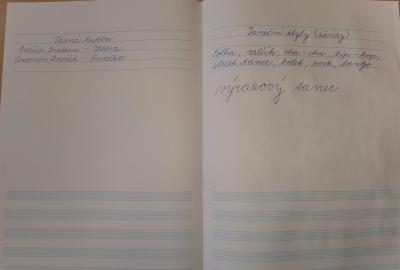 Vážná hudba
Bedřich Smetana - Vltava
Antonín Dvořák - Rusalka
Taneční styly (žánry)
Polka, valčík, cha-cha, hip-hop,
street dance, balet, rock, tango
výrazový tanec